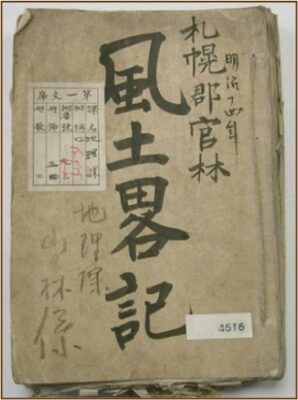 明治十四年
札幌郡官林
風土畧記
第一文庫
地理課
山林係
4616